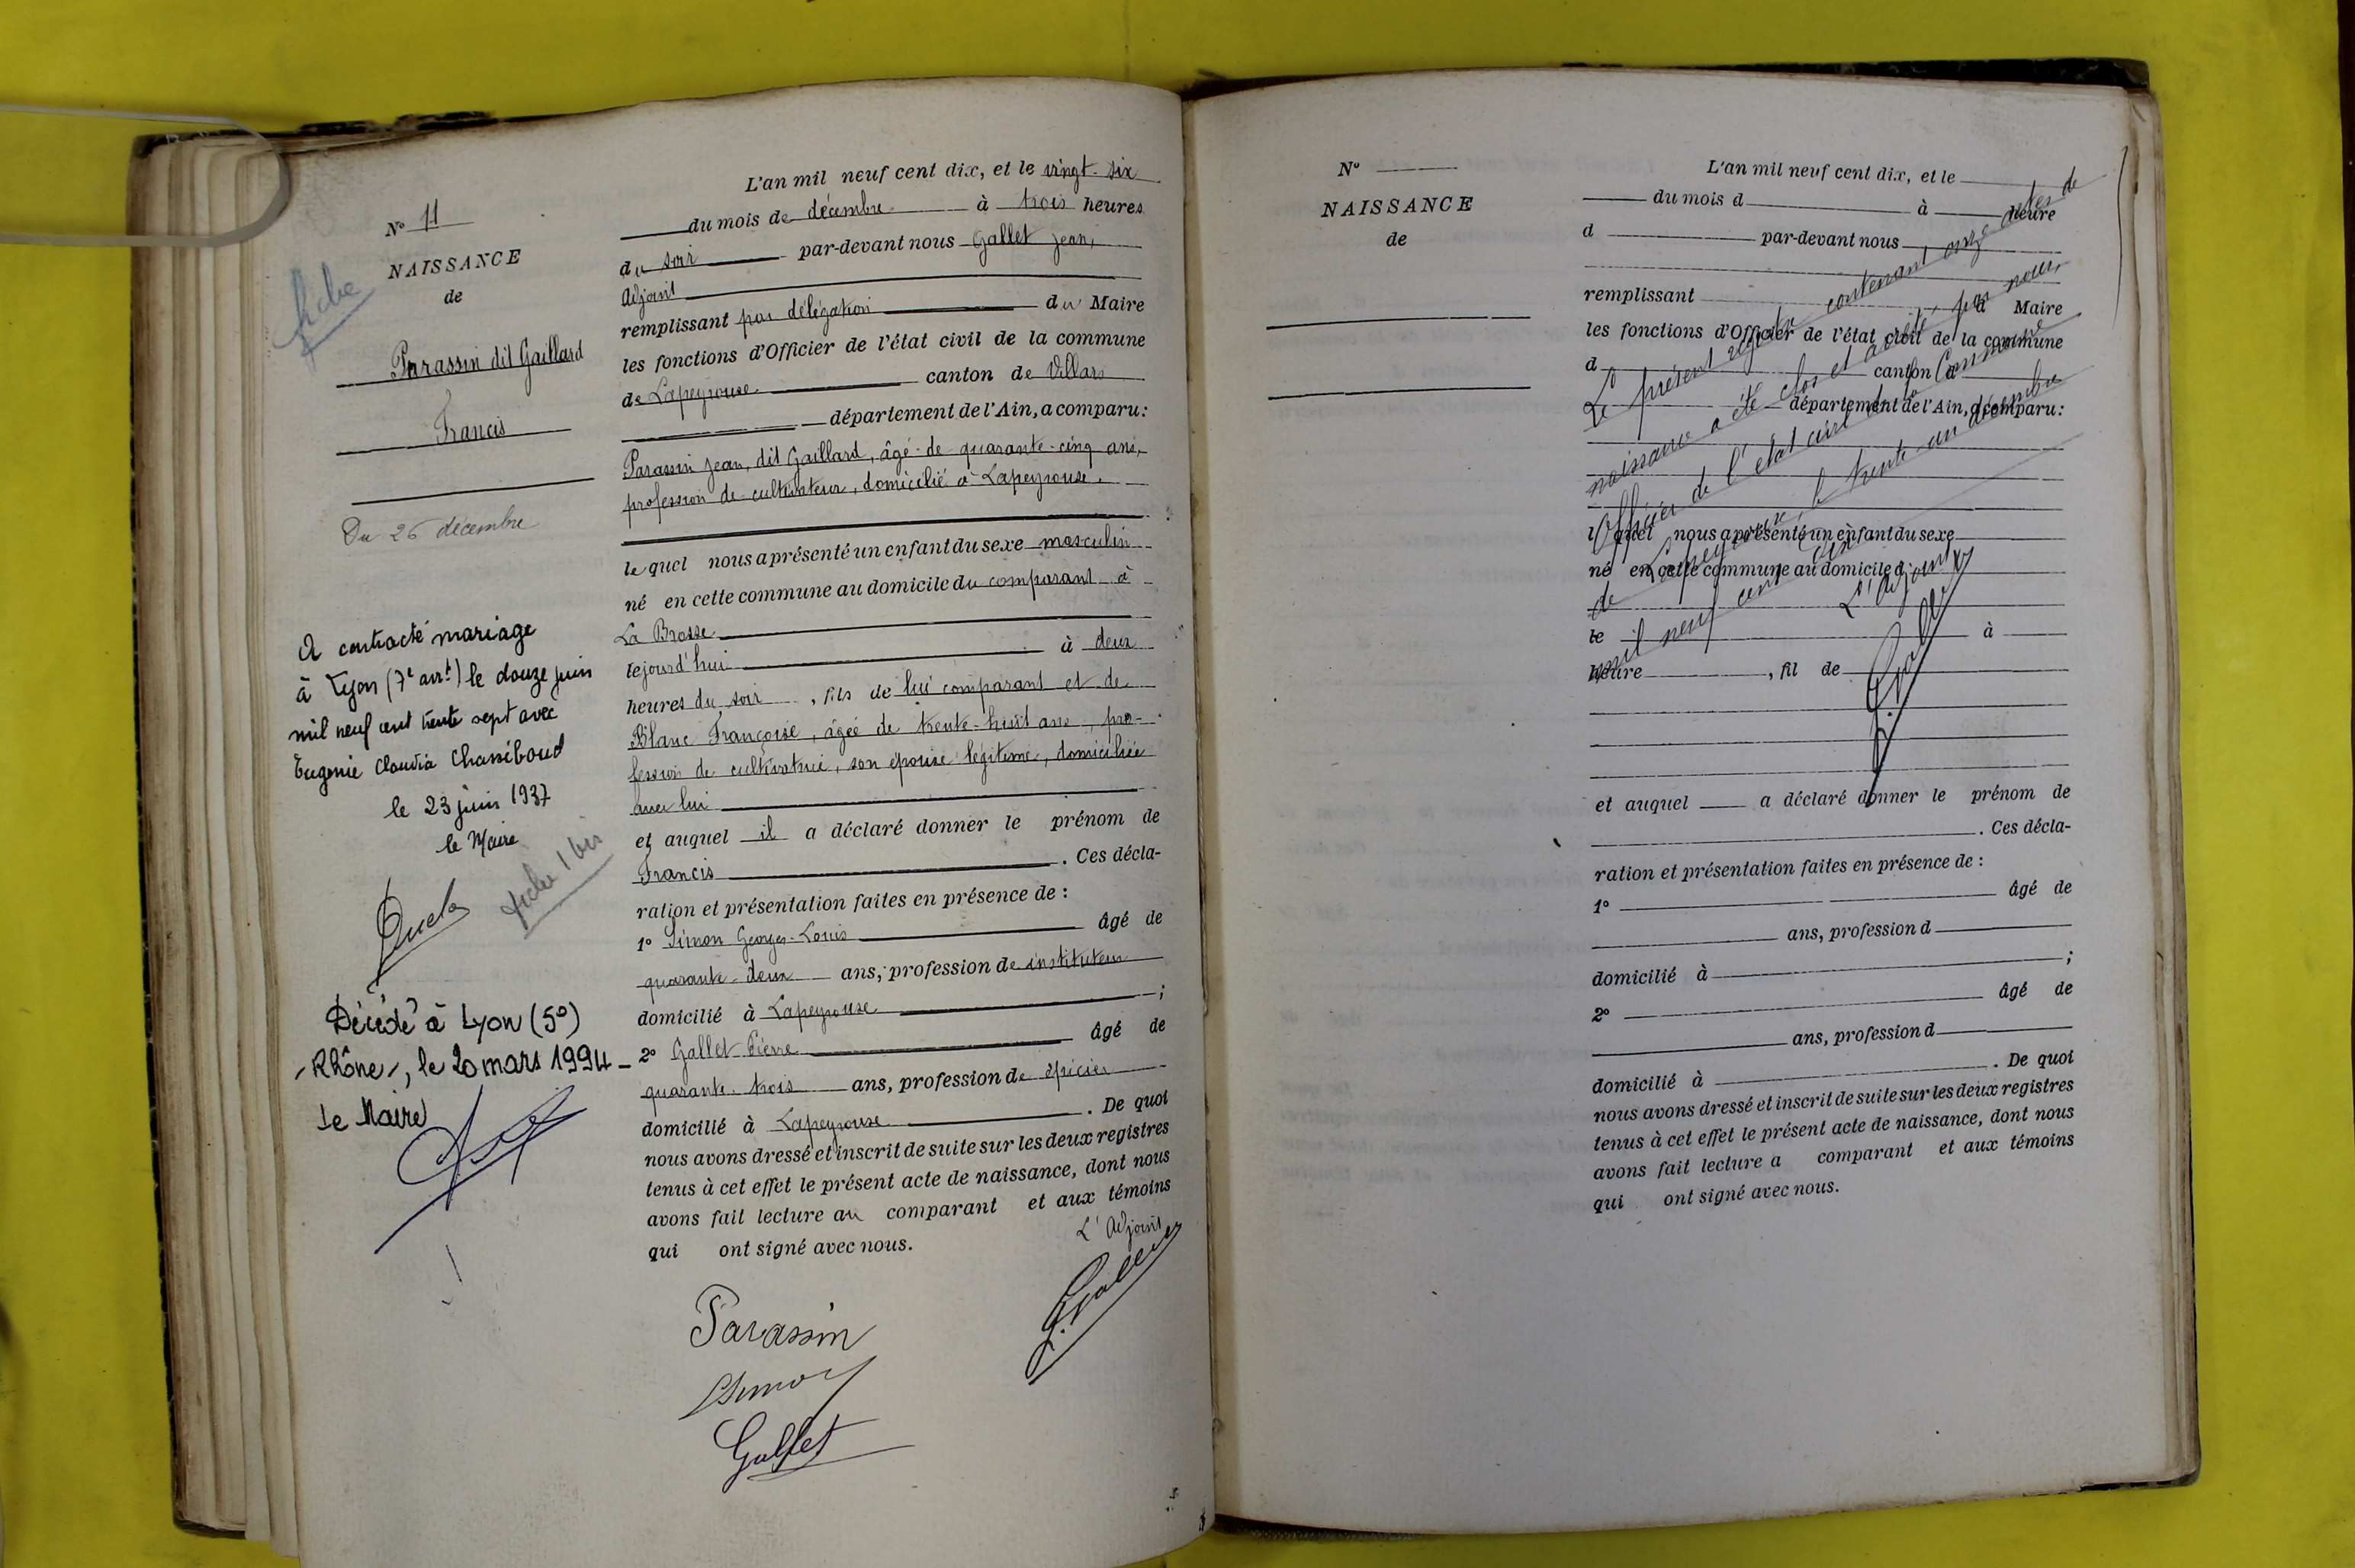 N° 11
NAISSANCE
de
fiche
Parassin dit Gaillard
Francis
Du 26 décembre
A contracté mariage
à Lyon (7e arrt) le douze juin
mil neuf cent trente sept avec
Eugenie Claudia Chanéboud
le 23 juin 1937
le Maire
fiche 1 bis
Décédé à Lyon (5°)
-Rhône-, le 20 mars 1994-
Le Maire
L'an mil neuf cent dix, et le vingt-six
du mois de décembre à trois heures
du soir par-devant nous Gallet Jean,
Adjoint
remplissant par délégation du Maire
les fonctions d'Officier de l'état civil de la commune
de Lapeyrouse canton de Villars
département de l'Ain, a comparu:
Parassin Jean, dit Gaillard, âgé de quarante-cinq ans,
profession de cultivateur, domicilié à Lapeyrouse.
lequel nous a présenté un enfant du sexe masculin
né en cette commune au domicile du comparant à
La Brosse
lejourd'hui à deux
heures du soir, fils de lui comparant et de
Blanc Françoise, âgée de trente-huit ans, pro-
fession de cultivatrice, son épouse légitime, domiciliée
avec lui
et auquel il a déclaré donner le prénom de
Francis. Ces décla-
ration et présentation faites en présence de :
1° Simon Georges-Louis âgé de
quarante-deux ans, profession de instituteur
domicilié à Lapeyrouse ;
2° Gallet Pierre âgé de
quarante-trois ans, profession de épicier
domicilié à Lapeyrouse. De quoi
nous avons dressé et inscrit de suite sur les deux registres
tenus à cet effet le présent acte de naissance, dont nous
avons fait lecture au comparant et aux témoins
qui ont signé avec nous.
L'Adjoint
J. Gallet
Parassin
Simon
Gallet
N°
NAISSANCE
de
L'an mil neuf cent dix, et le
du mois d à heure
d par-devant nous
remplissant d Maire
les fonctions d'Officier de l'état civil de la commune
d canton d
département de l'Ain, a comparu:
l quel nous a présenté un enfant du sexe
né en cette commune au domicile d
le à
heure , fil de
et auquel a déclaré donner le prénom de
. Ces décla-
ration et présentation faites en présence de :
1° âgé de
ans, profession d
domicilié à ;
2° âgé de
ans, profession d
domicilié à . De quoi
nous avons dressé et inscrit de suite sur les deux registres
tenus à cet effet le présent acte de naissance, dont nous
avons fait lecture a comparant et aux témoins
qui ont signé avec nous.
Le présent registre contenant onze actes de
naissance a été clos et arrêté par nous,
Officier de l'état civil de la Commune
de Lapeyrouse, le trente un décembre
mil neuf cent dix
L'Adjoint
J. Gallet